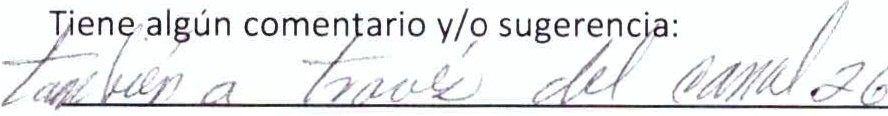 Tiene algún comentario y/o sugerencia:
también a través del canal 26